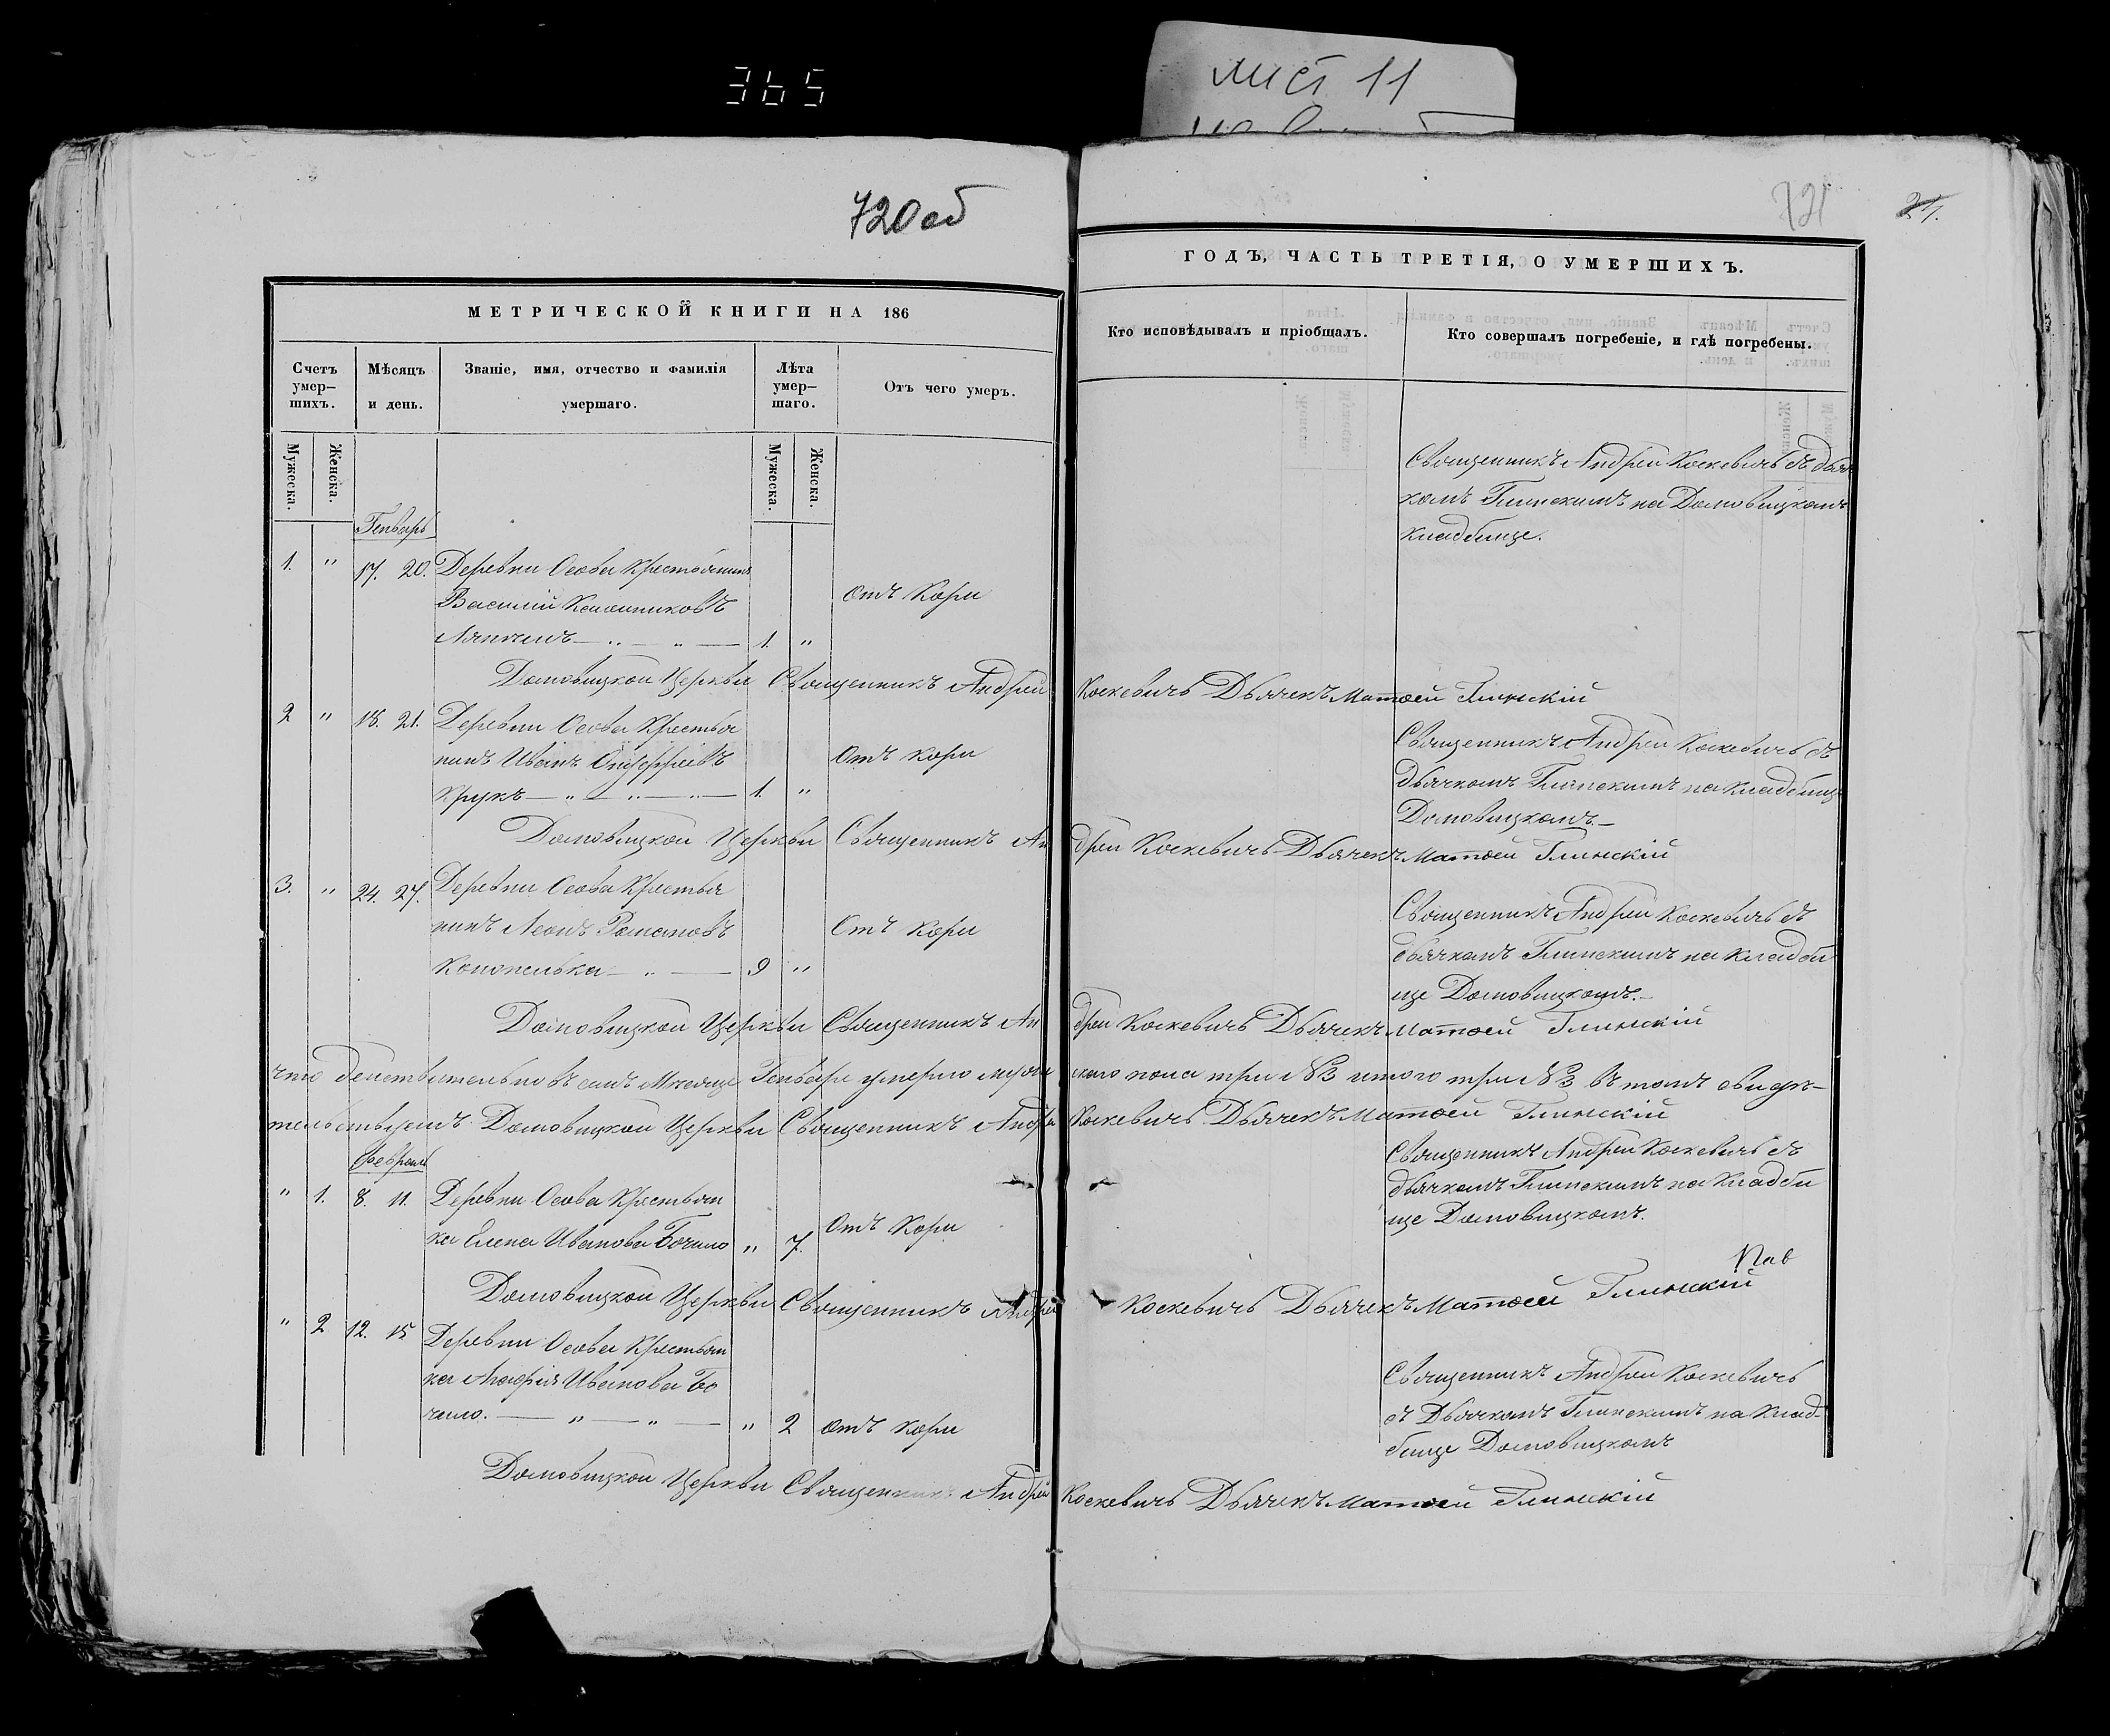 365
лист 11
720 об
721
27.
МЕТРИЧЕСКОЙ КНИГИ НА 186
ГОДЪ, ЧАСТЬ ТРЕТІЯ, О УМЕРШИХЪ.
Счетъ умер-шихъ.
Мѣсяцъ и день.
Званіе, имя, отчество и фамилія умершаго.
Лѣта умер-шаго.
Отъ чего умеръ.
Кто исповѣдывалъ и пріобщалъ.
Кто совершалъ погребеніе, и гдѣ погребены.
Мужеска.
Женска.
Мужеска.
Женска.
Генварь
1. " 17. 20. Деревни Осова Крестьянинъ
Василій
1. "
Отъ Кори
Священникъ Андрей Коскевичъ съ дьяч
комъ Глинскимъ на Домовицкомъ
Кладбище.
Домовицкой Церкви Священникъ Андрей Коскевичъ Дьячекъ Матѳей Глинскій
2 " 18. 21. Деревни Осова Крестья
нинъ Иванъ
Крукъ 1. "
Отъ Кори
Священникъ Андрей Коскевичъ съ
дьячкомъ Глинскимъ на Кладбище
Домовицкомъ.
Домовицкой Церкви Священникъ Андрей Коскевичъ Дьячекъ Матѳей Глинскій
3. " 24. 27. Деревни Осова Крестья
нинъ Леонъ Романовъ
Конопелька 9 "
Отъ Кори
Священникъ Андрей Коскевичъ съ
дьячкомъ Глинскимъ на Кладби
ще Домовицкомъ.
Домовицкой Церкви Священникъ Андрей Коскевичъ Дьячекъ Матѳей Глинскій
что действительно въ семъ Месяце Генваре умерло мужескаго пола три №3 итого три №3 въ томъ свидѣ-
тельствуемъ Домовицкой Церкви Священникъ Андрей Коскевичъ Дьячекъ Матѳей Глинскій
Февраль
" 1. 8. 11. Деревни Осова Крестьян
ка Елена Иванова Бочило " 7.
Отъ Кори
Священникъ Андрей Коскевичъ съ
дьячкомъ Глинскимъ на Кладби
ще Домовицкомъ.
Домовицкой Церкви Священникъ Андрей Коскевичъ Дьячекъ Матѳей Глинскій
" 2 12. 15. Деревни Осова Крестьян
ка Агафія Иванова Бо
чило. " 2
Отъ Кори
Священникъ Андрей Коскевичъ
съ Дьячкомъ Глинскимъ на Клад-
бище Домовицкомъ
Домовицкой Церкви Священникъ Андрей Коскевичъ Дьячекъ Матѳей Глинскій